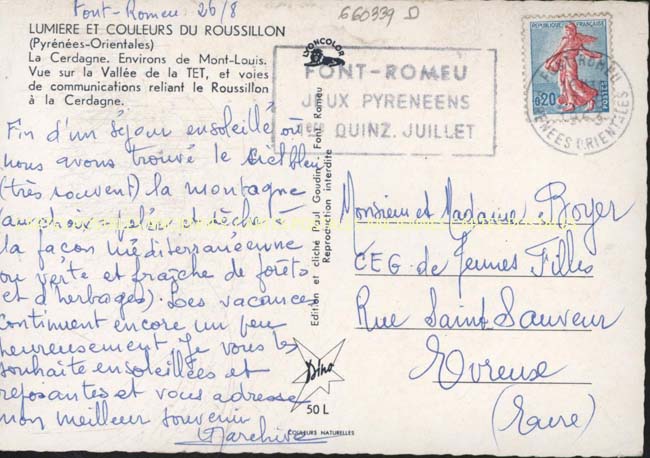 Font-Romeu 26/8
660339 D
LUMIERE ET COULEURS DU ROUSSILLON
(Pyrénées-Orientales)
La Cerdagne. Environs de Mont-Louis.
Vue sur la Vallée de la TET, et voies
de communications reliant le Roussillon
à la Cerdagne.
Fin d'un séjour ensoleillé où
nous avons trouvé le ciel bleu
(très souvent) la montagne
pelée et sèche à
la façon méditerranéenne
ou verte et fraîche de forêts
et d'herbages). Les vacances
continuent encore un peu
heureusement Je vous les
souhaite ensoleillées et
reposantes et vous adresse
mon meilleur souvenir
LYONCOLOR
Edition et cliché Paul Goudin. Font Romeu
Reproduction interdite
Dino
50 L
COULEURS NATURELLES
FONT-ROMEU
JEUX PYRENEENS
1re QUINZ. JUILLET
0,20
POSTES
FONT-ROMEU
PYRENEES ORIENTALES
Monsieur et Madame Boyer
CEG. de Jeunes Filles
Rue Saint Sauveur
Evreux
(Eure)